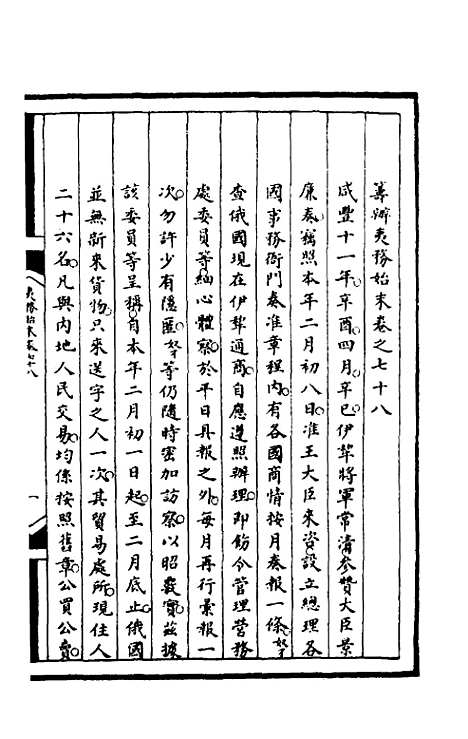 籌辦夷務始末卷之七十八
咸豐十一年。辛酉。四月。辛巳。伊犂將軍常清參贊大臣景
廉奏。竊照本年二月初八日。准王大臣來咨。設立總理各
國事務衙門。奏准章程內。有各國商情按月奏報一條。奴才
查俄國現在伊犂通商。自應遵照辦理。即飭令管理營務
處委員等細心體察。於平日具報之外。每月再行彙報一
次。勿許少有隱匿。奴才等仍隨時密加訪察。以昭覈實。茲據
該委員等呈稱。自本年二月初一日起。至二月底止。俄國
並無新來貨物。只來送字之人一次。其貿易處所。現住人
二十六名。凡與內地人民交易。均係按照舊章。公買公賣。
夷務始末卷七十八
一